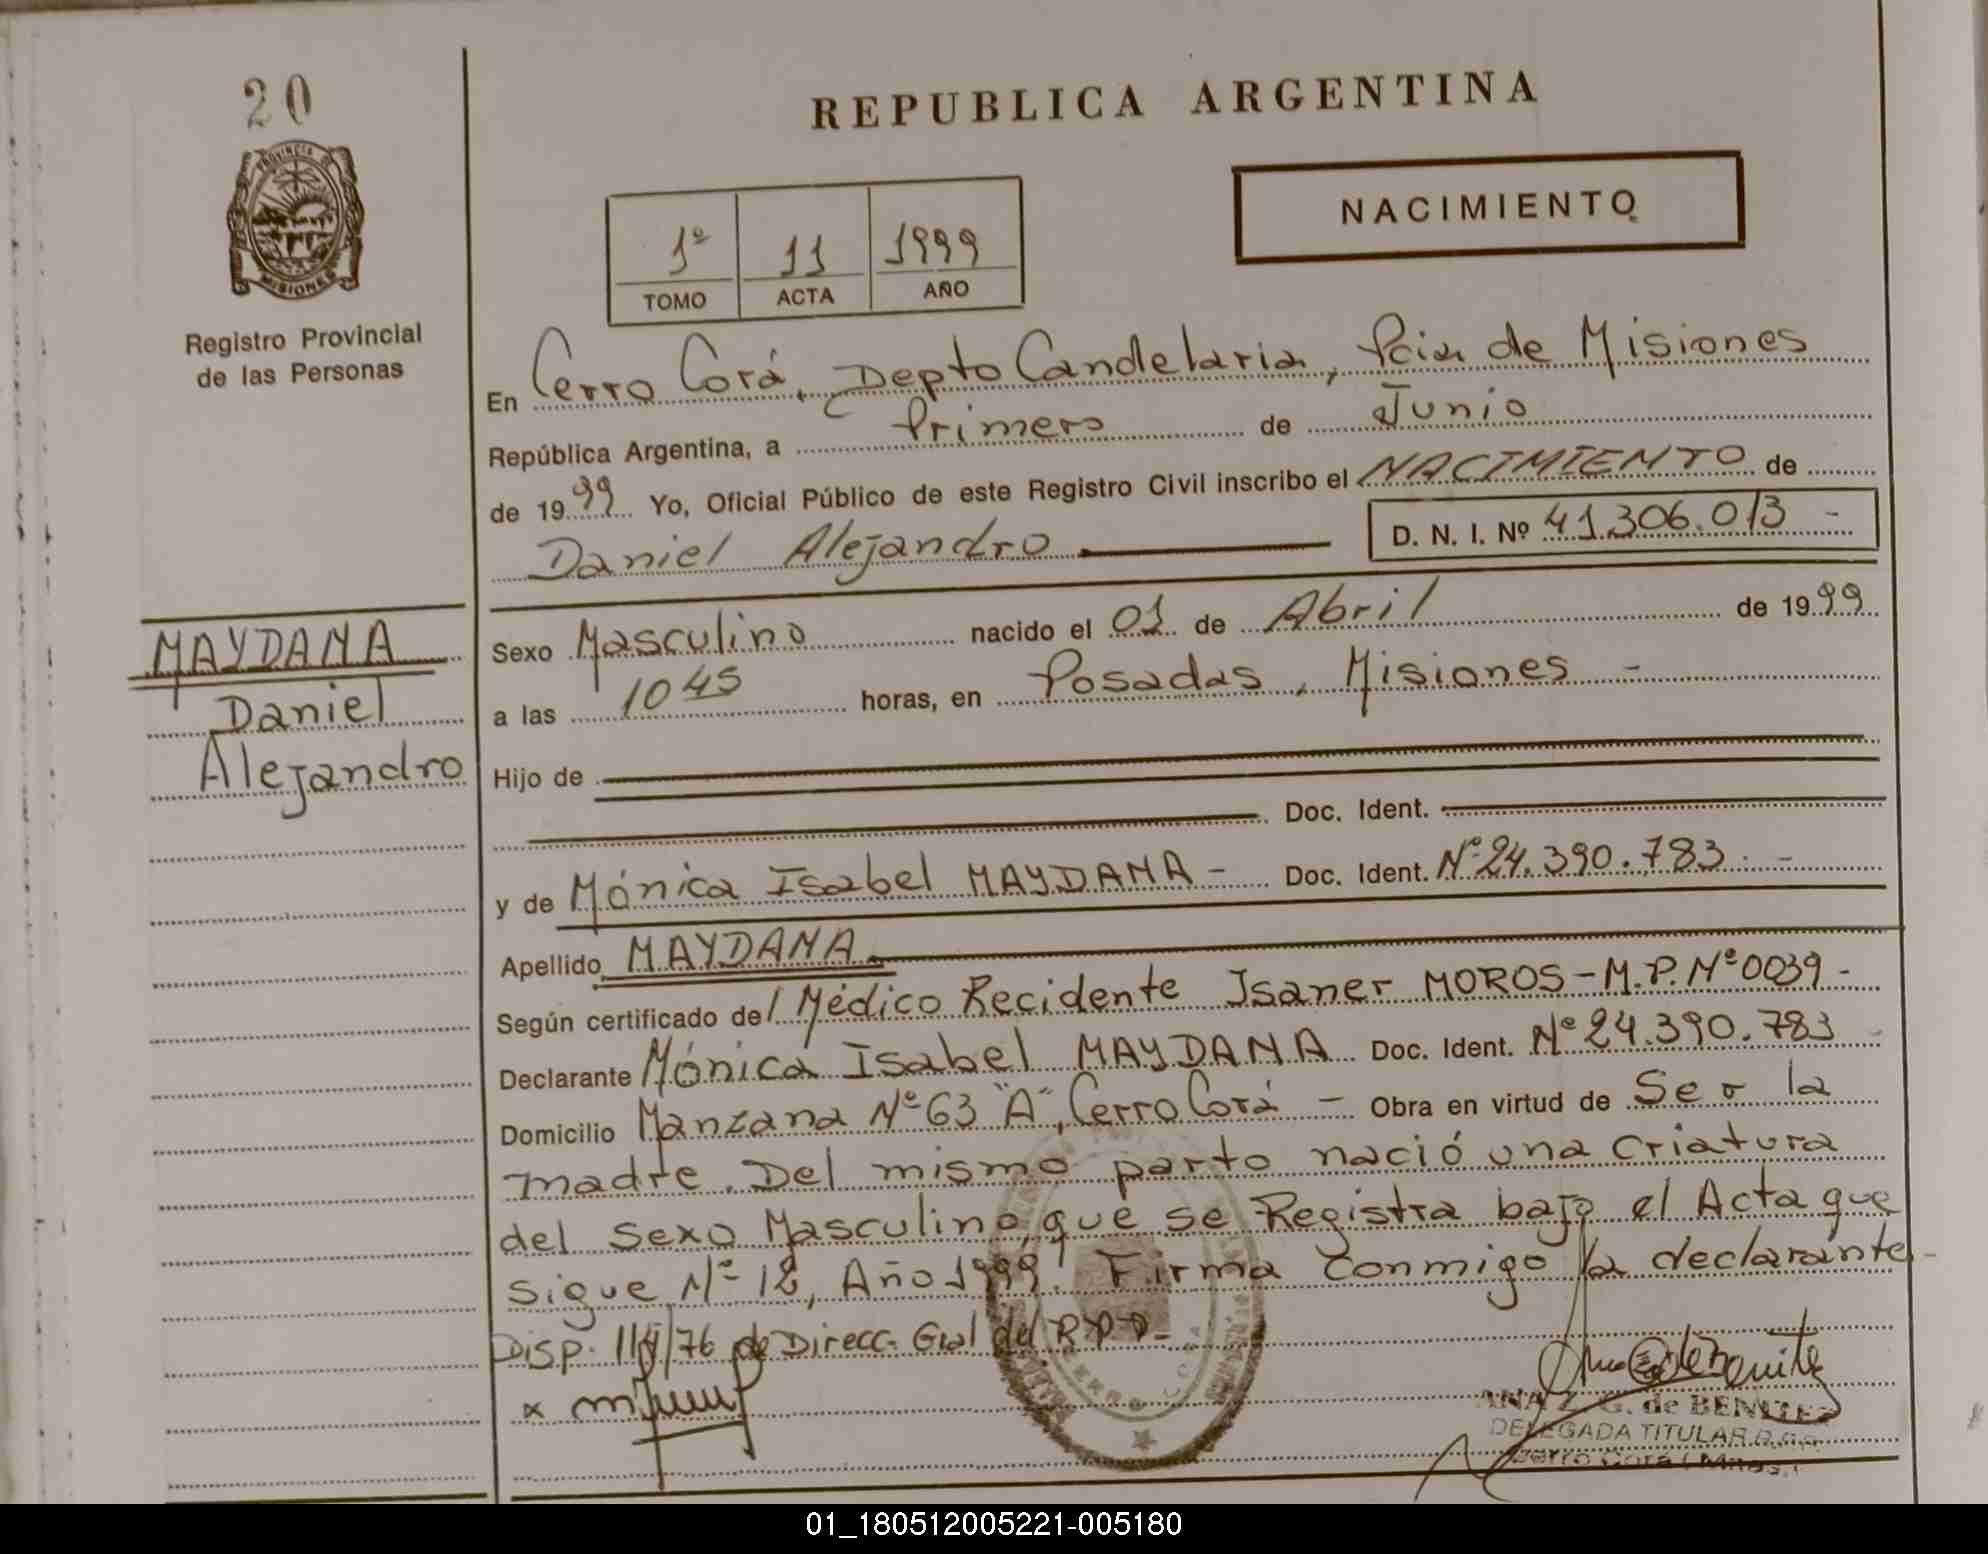 20
REPUBLICA ARGENTINA
PROVINCIA DE
MISIONES
Registro Provincial
de las Personas
NACIMIENTO
1º 11 1999
TOMO ACTA AÑO
En Cerro Corá, Depto Candelaria, Pcia de Misiones
República Argentina, a Primero de Junio
de 1999 Yo, Oficial Público de este Registro Civil inscribo el NACIMIENTO de
Daniel Alejandro D. N. I. Nº 41.306.013 -
MAYDANA
Daniel
Alejandro
Sexo Masculino nacido el 01 de Abril de 1999
a las 1045 horas, en Posadas, Misiones -
Hijo de
Doc. Ident.
y de Mónica Isabel MAYDANA - Doc. Ident. Nº 24.390.783 -
Apellido MAYDANA
Según certificado del Médico Recidente Isaner MOROS - M.P. Nº 0039 -
Declarante Mónica Isabel MAYDANA Doc. Ident. Nº 24.390.783 -
Domicilio Manzana Nº 63 "A", Cerro Corá - Obra en virtud de Ser la
madre. Del mismo parto nació una criatura
del sexo Masculino, que se Registra bajo el Acta que
sigue Nº 12, Año 1999. Firma conmigo la declarante -
Disp. 114/76 de Direcc. Gral del R.P.P. -
x
CERRO CORA
ANA Z. G. de BENITEZ
DELEGADA TITULAR
Cerro Corá (Mnes.)
01_180512005221-005180